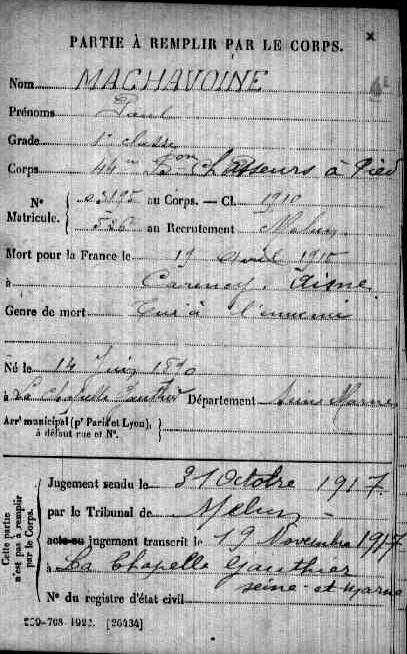 PARTIE À REMPLIR PAR LE CORPS.
Nom MACHAVOINE
Prénoms Paul
Grade 1e classe
Corps 44me Bon Chasseurs à Pied
N° Matricule. 03195 au Corps. — Cl. 1910
526 au Recrutement Melun
Mort pour la France le 19 avril 1915
à Carency, Aisne
Genre de mort Tué à l'ennemi
Né le 14 Juin 1890
à La Chapelle Gauthier Département Seine Marne
Arrt municipal (pr Paris et Lyon), à défaut rue et N°.
Cette partie n'est pas à remplir par le Corps.
Jugement rendu le 31 Octobre 1917.
par le Tribunal de Melun
acte ou jugement transcrit le 19 Novembre 1917
à La Chapelle Gauthier
Seine-et-Marne
N° du registre d'état civil
[26434]